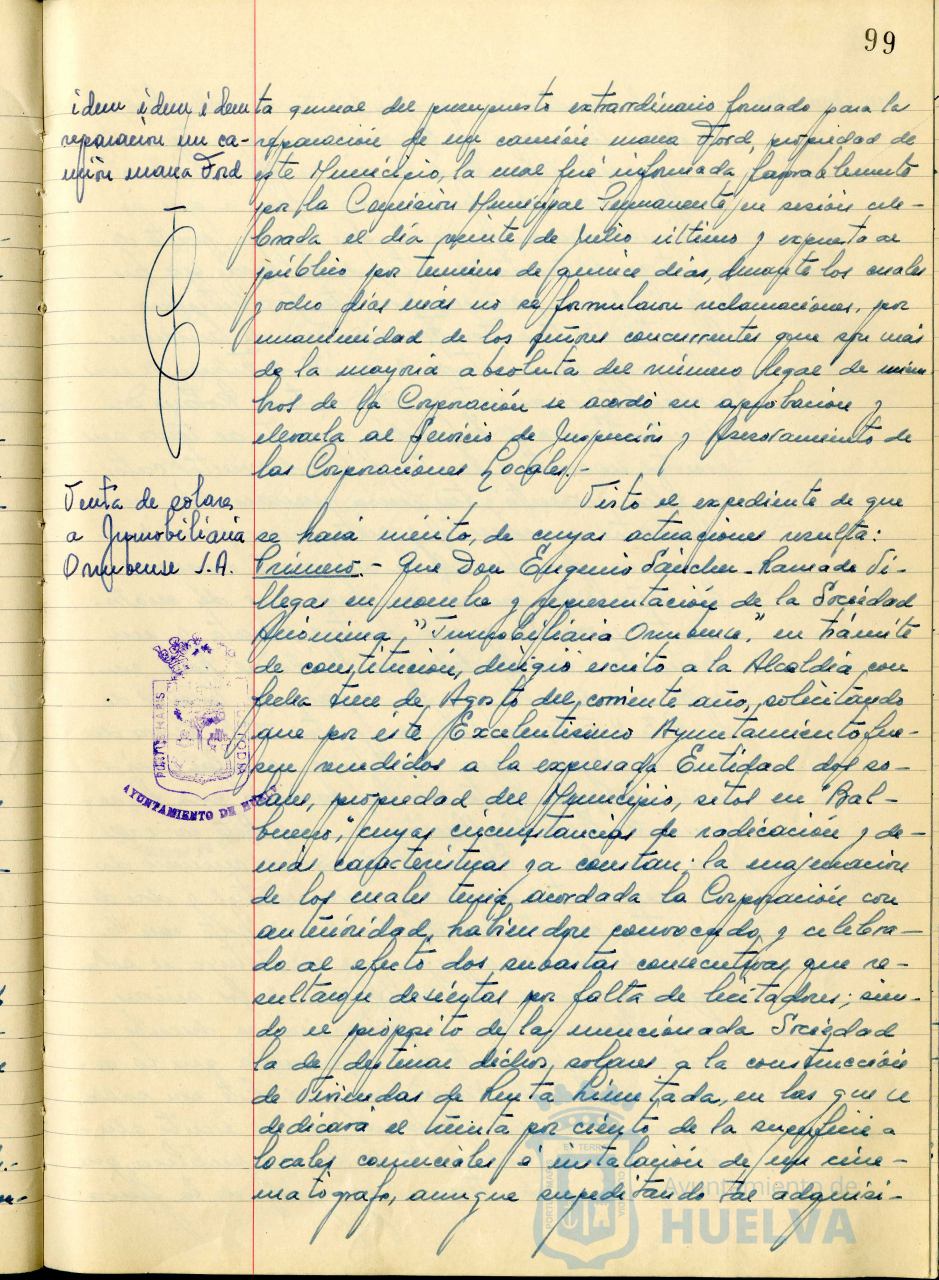 99
idem idem idem
reparación un ca-
mión marca Ford
ta general del presupuesto extraordinario formado para la
reparación de un camión marca Ford, propiedad de
este Municipio, la cual fué informada favorablemente
por la Comisión Municipal Permanente en sesión cele-
brada el día veinte de Julio último y expuesta al
público por termino de quince días, durante los cuales
y ocho días más no se formularon reclamaciones, por
unanimidad de los señores concurrentes que son más
de la mayoría absoluta del número legal de miem-
bros de la Corporación se acordó su aprobación y
elevarla al Servicio de Inspección y Asesoramiento de
las Corporaciones Locales.-
Venta de solares
a Inmobiliaria
Onubense S.A.
Visto el expediente de que
se hará mérito, de cuyas actuaciones resulta:
Primero.- Que Don Eugenio Sánchez-Ramade Vi-
llegas en nombre y representación de la Sociedad
Anónima, "Inmobiliária Onubense," en trámite
de constitución, dirigió escrito a la Alcaldía con
fecha trece de Agosto del corriente año, solicitando
que por éste Excelentísimo Ayuntamiento fue-
sen vendidos a la expresada Entidad dos so-
lares, propiedad del Municipio, sitos en "Bal-
bueno," cuyas circunstancias de radicación y de-
más características ya constan; la enajenación
de los cuales tenía acordada la Corporación con
anterioridad, habiendose convocado y celebra-
do al efecto dos subastas consecutivas que re-
sultaron desiertas por falta de licitadores; sien-
do el propósito de la mencionada Sociedad
la de destinar dichos solares a la construcción
de Viviendas de Renta Limitada, en las que se
dedicará el treinta por ciento de la superficie a
locales comerciales e instalación de un cine-
matógrafo, aunque supeditando tal adquisi-
AYUNTAMIENTO DE
Ayuntamiento de
HUELVA